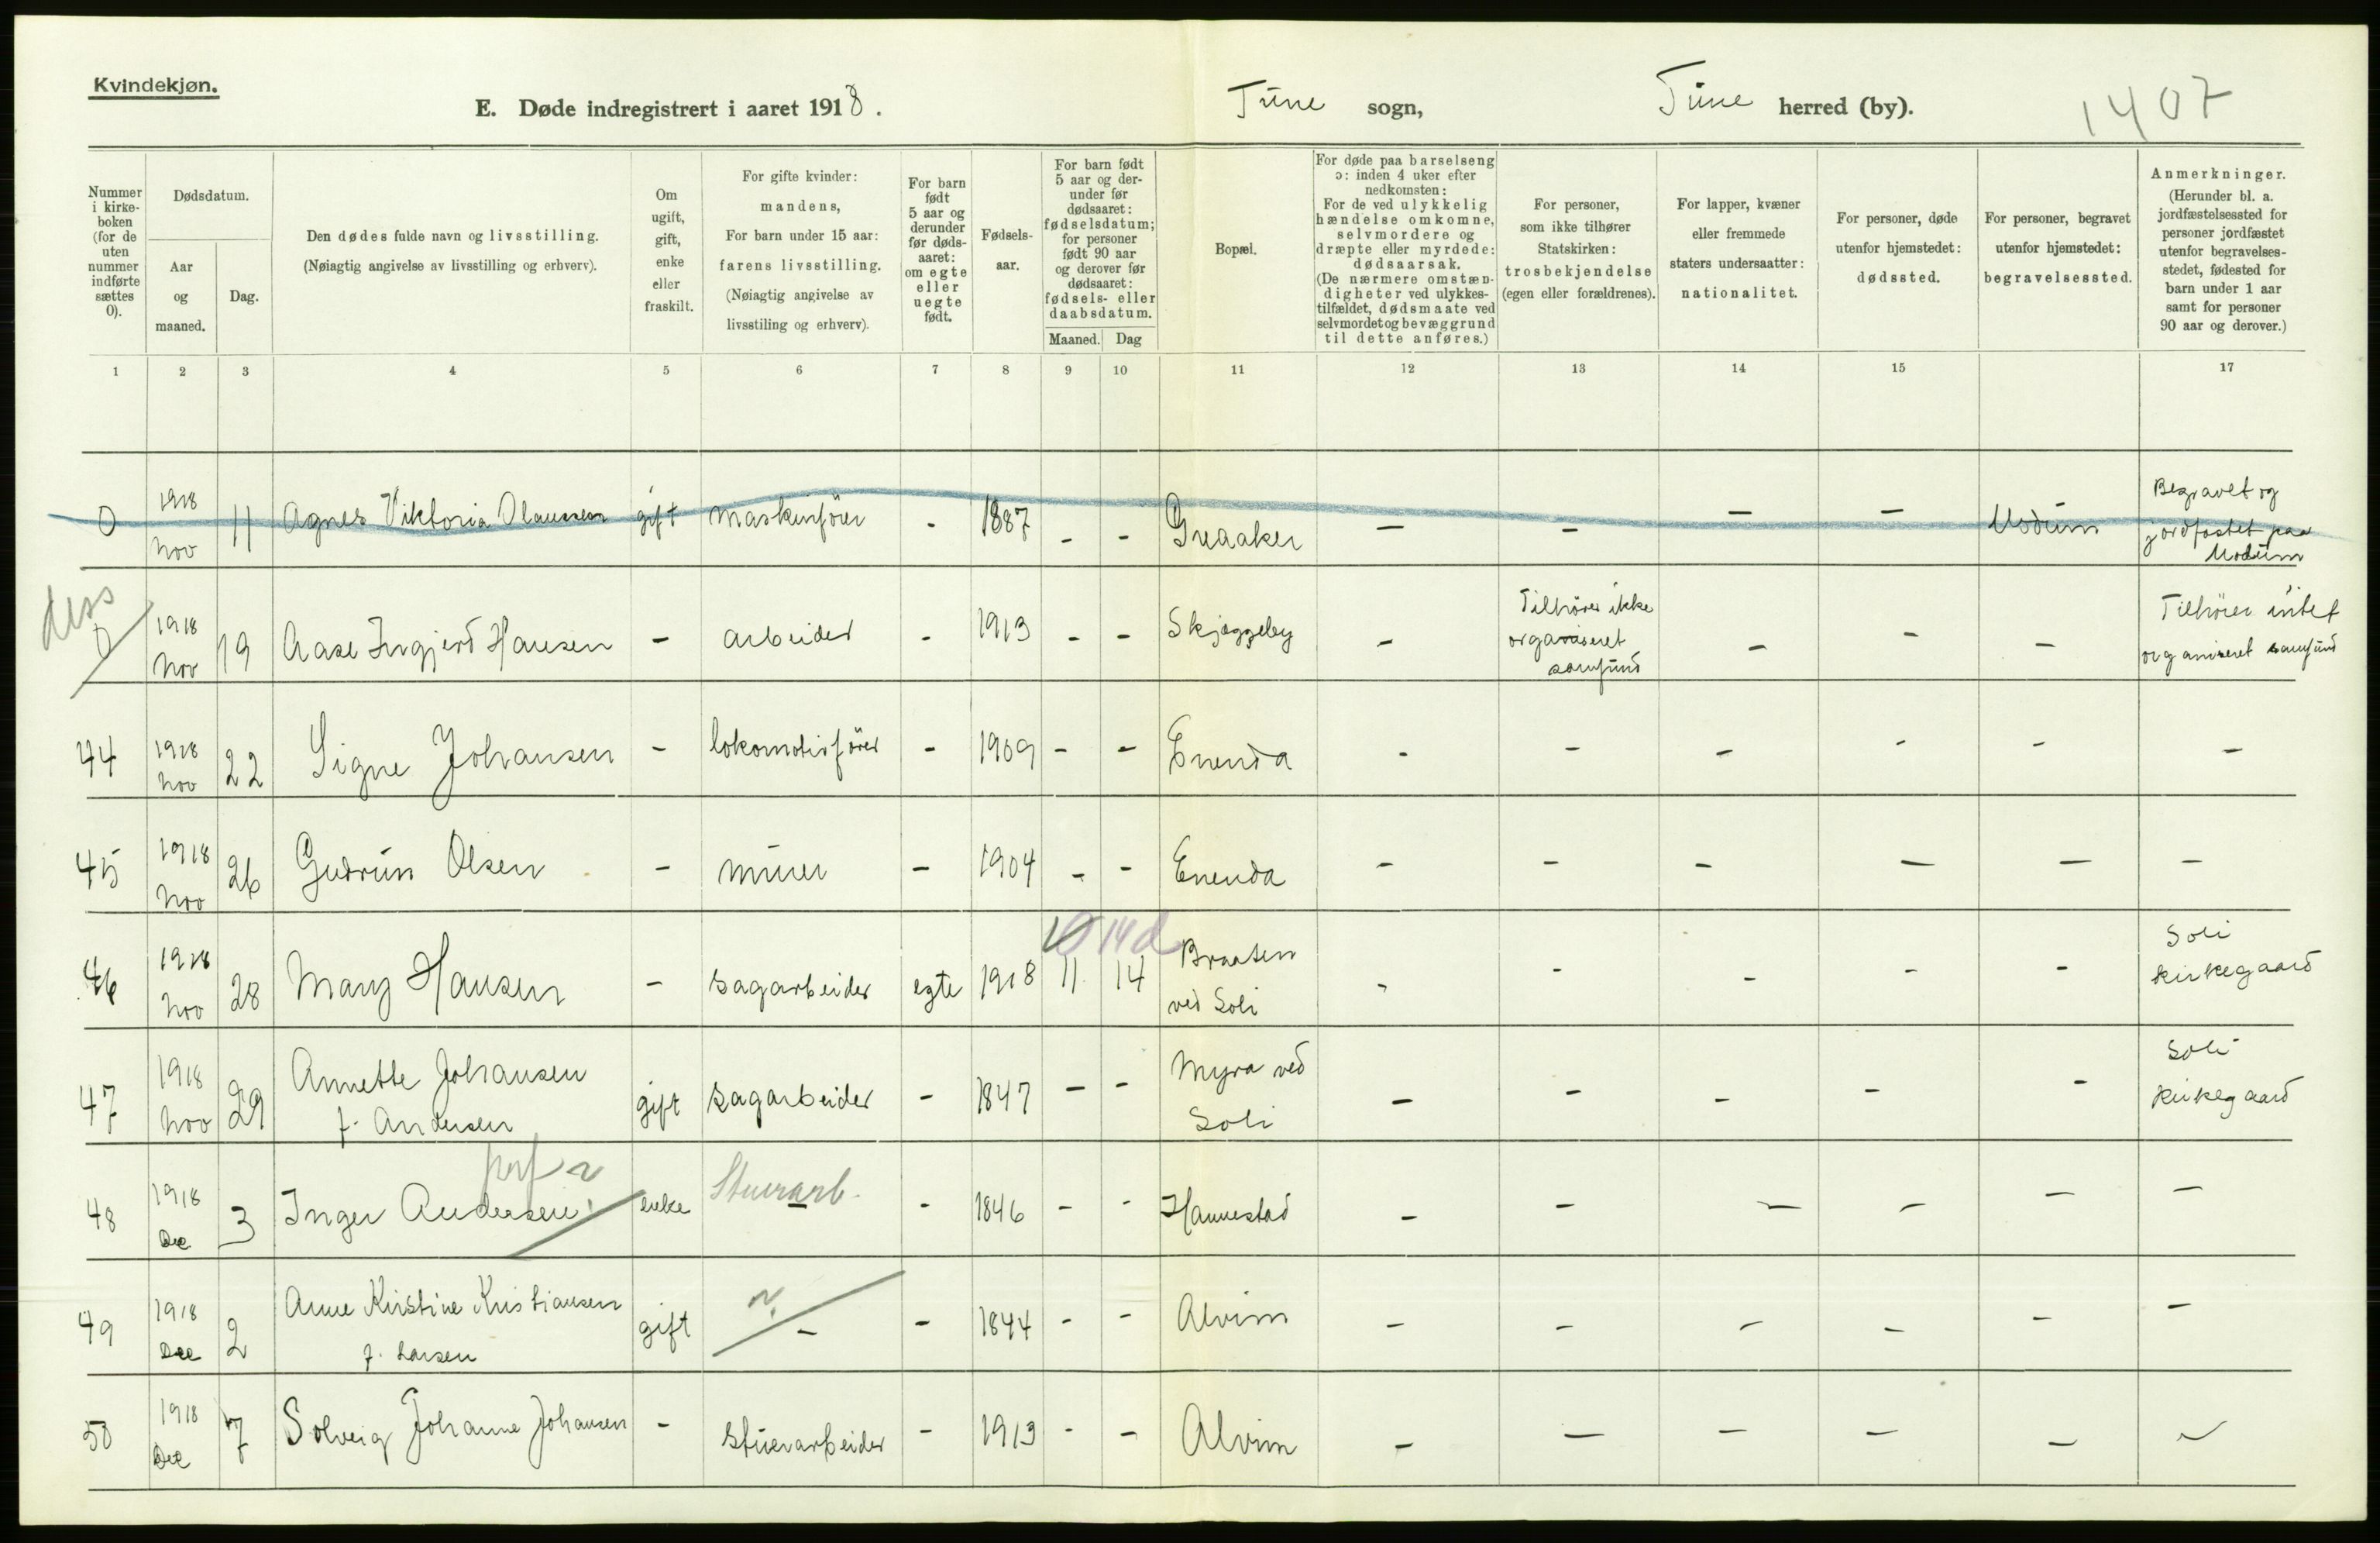 Kvindekjøn.
E. Døde indregistrert i aaret 1918.
Tune sogn,
Tune herred (by).
1407
Nummer i kirke-boken (for de uten nummer indførte sættes 0).
Dødsdatum.
Aar og maaned.
Dag.
Den dødes fulde navn og livsstilling.
(Nøiagtig angivelse av livsstilling og erhverv).
Om ugift, gift, enke eller fraskilt.
For gifte kvinder: mandens,
For barn under 15 aar: farens livsstilling.
(Nøiagtig angivelse av livsstiling og erhverv).
For barn født 5 aar og derunder før døds-aaret: om egte eller uegte født.
Fødsels-aar.
For barn født 5 aar og der-under før dødsaaret: fødselsdatum; for personer født 90 aar og derover før dødsaaret: fødsels- eller daabsdatum.
Maaned.
Dag
Bopæl.
For døde paa barselseng ɔ: inden 4 uker efter nedkomsten:
For de ved ulykkelig hændelse omkomne, selvmordere og dræpte eller myrdede: dødsaarsak.
(De nærmere omstæn-digheter ved ulykkes-tilfældet, dødsmaate ved selvmordet og bevæggrund til dette anføres.)
For personer, som ikke tilhører Statskirken: trosbekjendelse (egen eller forældrenes).
For lapper, kvæner eller fremmede staters undersaatter: nationalitet.
For personer, døde utenfor hjemstedet: dødssted.
For personer, begravet utenfor hjemstedet: begravelsessted.
Anmerkninger.
(Herunder bl. a. jordfæstelsessted for personer jordfæstet utenfor begravelses-stedet, fødested for barn under 1 aar samt for personer 90 aar og derover.)
1 2 3 4 5 6 7 8 9 10 11 12 13 14 15 17
0 1918 Nov 11 Agnes Viktoria Olaussen gift maskinfører - 1887 - - Greaaker - - - - Modum Begravet og jordfæstet paa Modum
dss
0 1918 Nov 19 Aase Ingjerd Hansen - arbeider - 1913 - - Skjæggeby - Tilhører ikke organiseret samfund - - - Tilhører intet organiseret samfund
44 1918 Nov 22 Signe Johansen - lokomotivfører - 1909 - - Enenda - - - - - -
45 1918 Nov 26 Gudrun Olsen - murer - 1904 - - Enenda - - - - - -
14 d
46 1918 Nov 28 Mary Hansen - sagarbeider egte 1918 11 14 Braaten ved Soli - - - - - Soli kirkegaard
47 1918 Nov 29 Annette Johansen f. Andersen gift sagarbeider - 1847 - - Myra ved Soli - - - - - Soli kirkegaard
48 1918 Dec 3 Inger Andersen enke Stuerarb. - 1846 - - Hannestad - - - - - -
49 1918 Dec 2 Anne Kirstine Kristiansen f. Larsen gift - - 1844 - - Alvim - - - - - -
50 1918 Dec 7 Solveig Johanne Johansen - stuerarbeider - 1913 - - Alvim - - - - - -